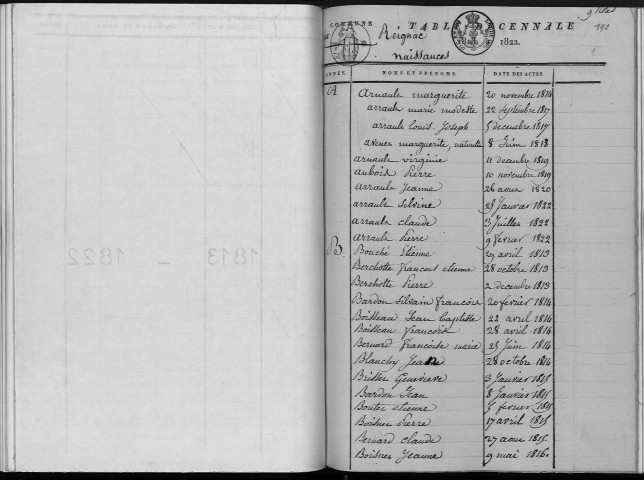 COMMUNE
TABLE DÉCENNALE
Reignac
1822.
naissances
NOMS ET PRÉNOMS.
DATE DES ACTES.
A
Arnault marguerite 20 novembre 1814
arrault marie modeste 22 septembre 1817
arrault Louis Joseph 5 decembre 1817
marguerite, naturelle 8 Juin 1818
arnault virginie 11 decembre 1819
aubois Pierre 10 novembre 1819
arrault Jeanne 26 aout 1820
arrault Silvine 28 Janvier 1822
arrault claude 3 Juillet 1822
arrault Pierre 9 fevrier 1822
B.
Bouché Etienne 29 avril 1813
Berchotte francois etienne 28 octobre 1813
Berchotte Pierre 2 decembre 1813
Bardon Silvain francois 20 fevrier 1814
Boisseau Jean Baptiste 22 avril 1814
Boisseau francois 28 avril 1814
Bernard francoise marie 25 Juin 1814
Blanchy Jean 28 octobre 1814
Brisset Genevieve 3 Janvier 1815
Bardon Jean 8 Janvier 1815
Boutet etienne 5 fevrier 1815
Boisnet Pierre 17 avril 1815
Bernard claude 27 aout 1815
Boisnet Jeanne 9 mai 1816
1813 - 1822